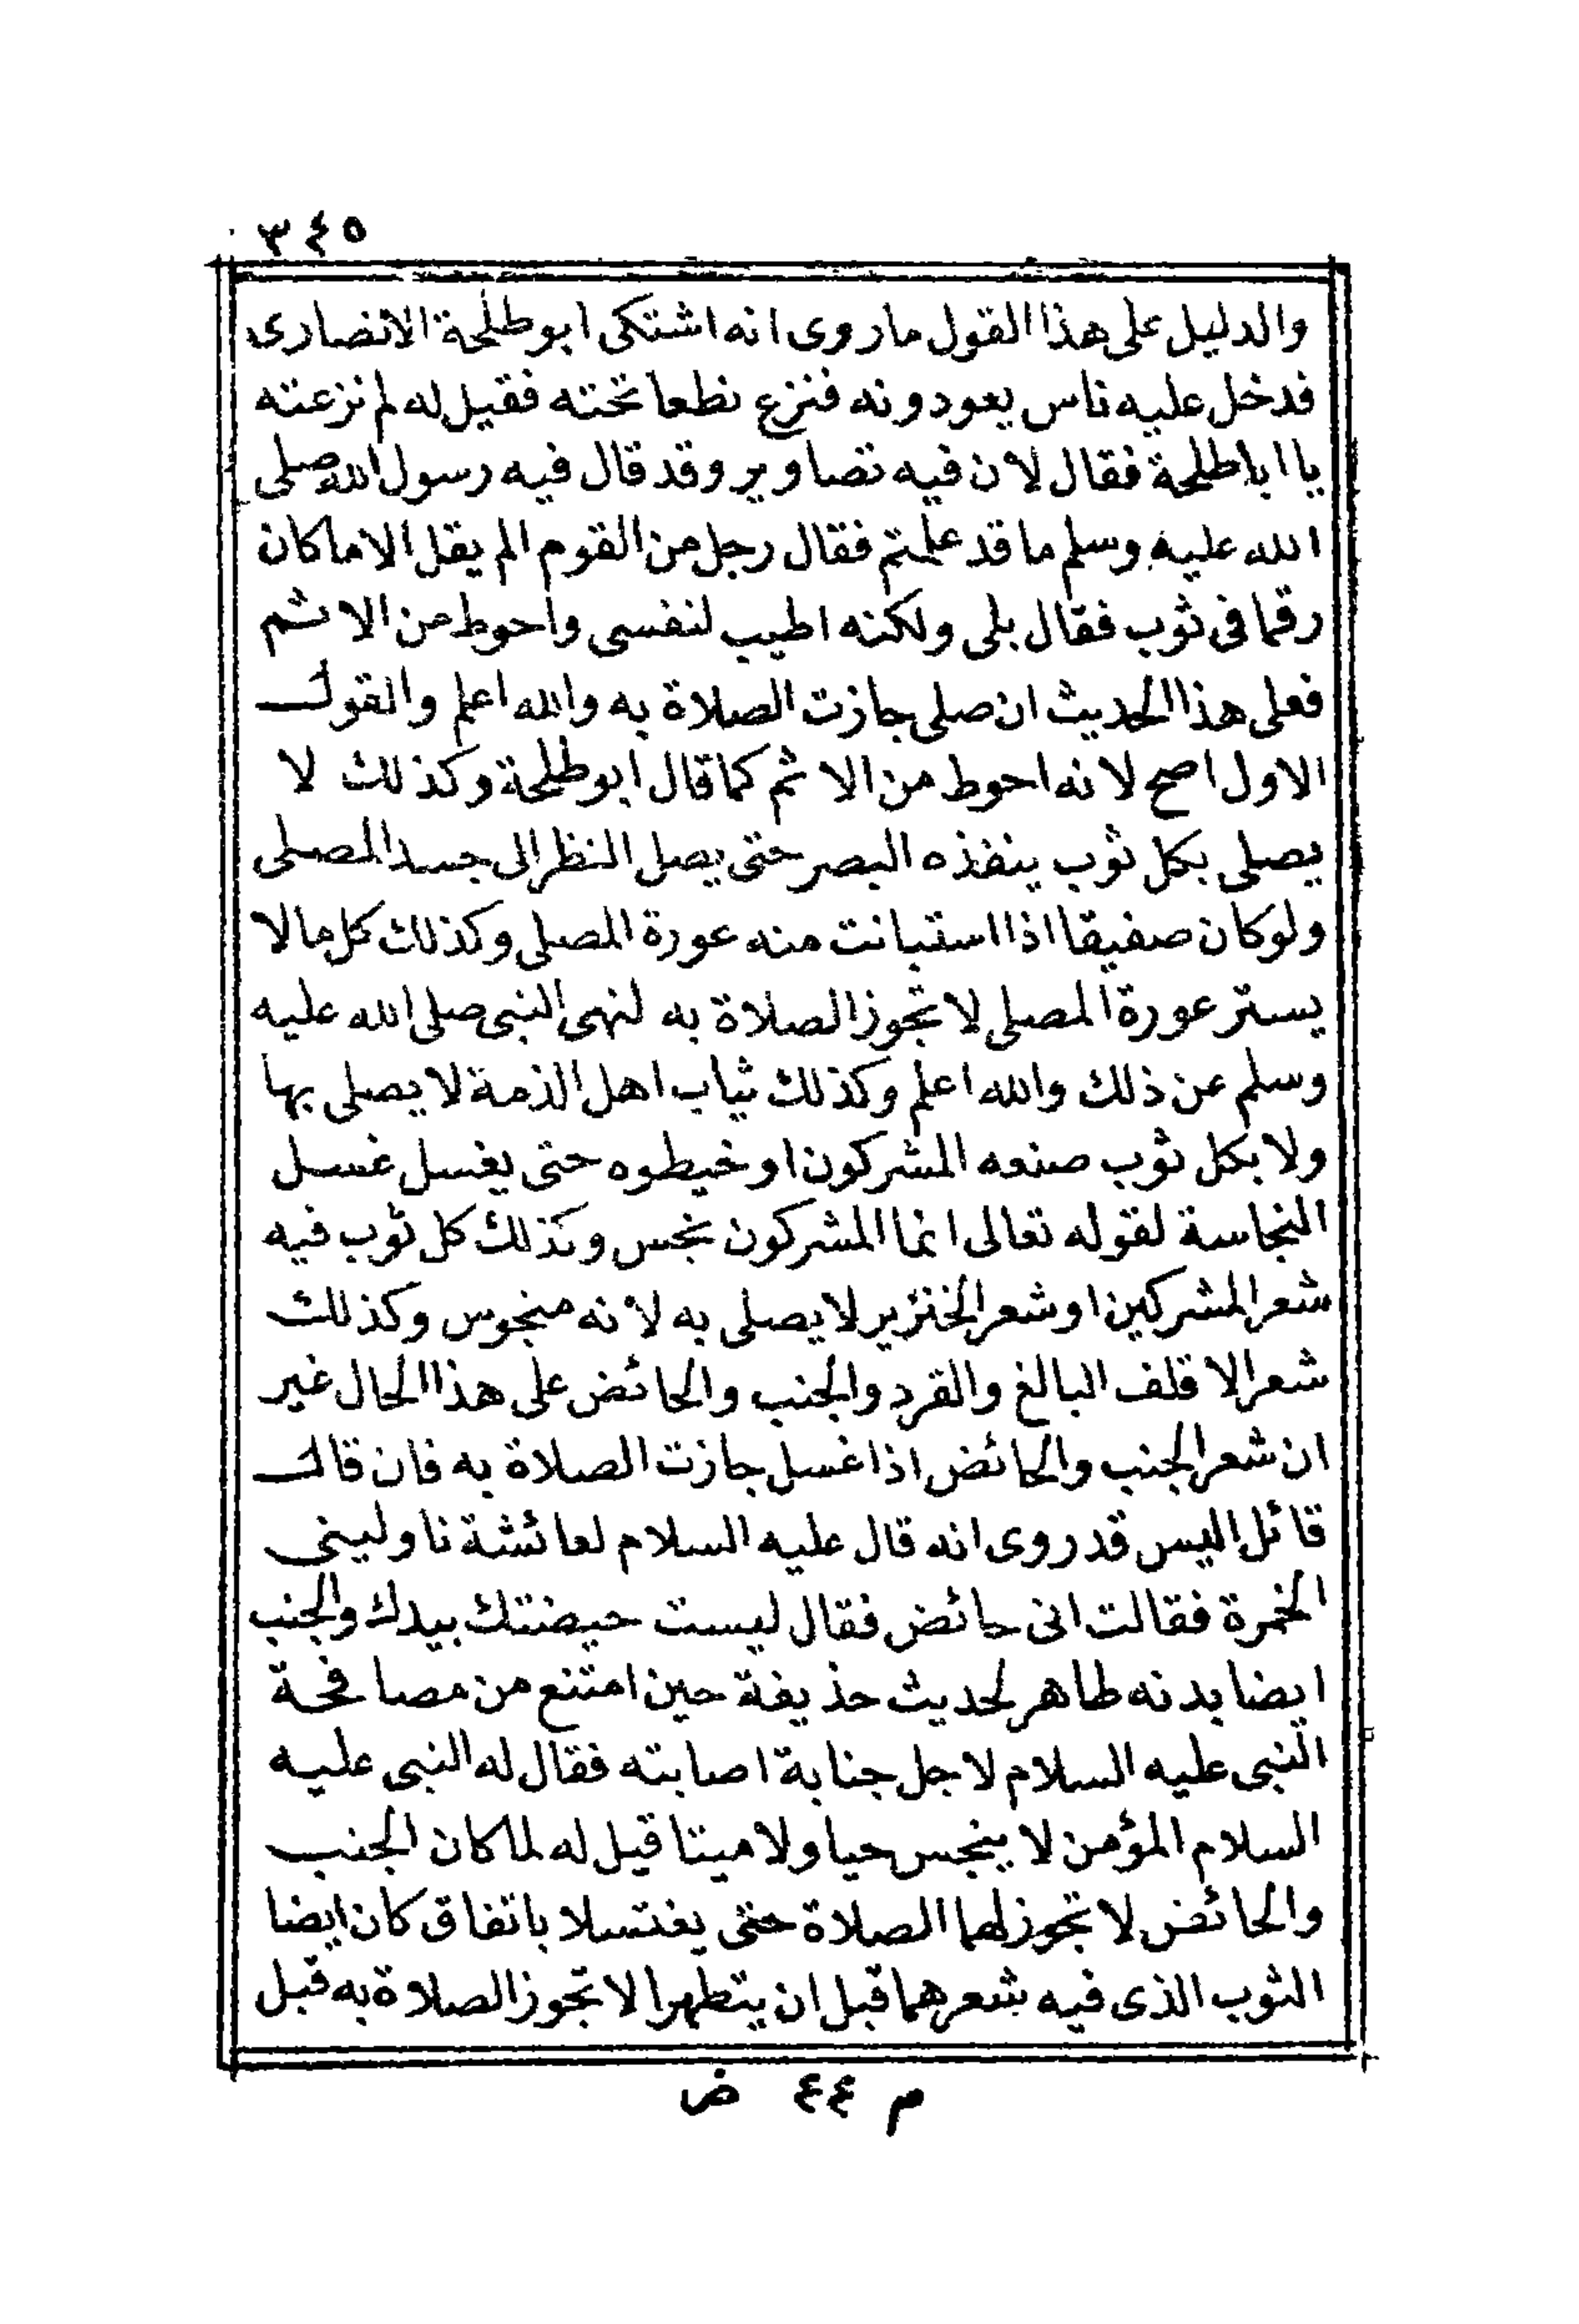 ٣٤٥
والدليل على هذا القول ماروى انه اشتكى ابوطلحة الانصارى
فدخل عليه ناس يعودونه فنزع نطعا تحته فقيل له لم نزعته
يا اباطلحة فقال لان فيه تصاوير وقد قال فيه رسول الله صلى
الله عليه وسلم ما قد علمتم فقال رجل من القوم الم يقل الا ماكان
رقما فى ثوب فقال بلى ولكنه اطيب لنفسى واحوط من الاثم
فعلى هذا الحديث ان صلى جازت الصلاة به والله اعلم والقول
الاول اصح لانه احوط من الاثم كما قال ابوطلحة وكذلك لا
يصلى بكل ثوب ينفذه البصر حتى يصل النظر الى جسد المصلى
ولوكان صفيقا اذا استبانت منه عورة المصلى وكذلك كل ما لا
يستر عورة المصلى لا تجوز الصلاة به لنهى النبى صلى الله عليه
وسلم عن ذلك والله اعلم وكذلك ثياب اهل الذمة لا يصلى بها
ولا بكل ثوب صنعه المشركون او خيطوه حتى يغسل غسل
النجاسة لقوله تعالى انما المشركون نجس وكذلك كل ثوب فيه
شعر المشركين او شعر الخنزير لا يصلى به لانه منجوس وكذلك
شعر الاقلف البالغ والقرد والجنب والحائض على هذا الحال غير
ان شعر الجنب والحائض اذا غسل جازت الصلاة به فان قال
قائل اليس قد روى انه قال عليه السلام لعائشة ناولينى
الخمرة فقالت انى حائض فقال ليست حيضتك بيدك والجنب
ايضا بدنه طاهر لحديث حذيفة حين امتنع من مصافحة
النبى عليه السلام لاجل جنابة اصابته فقال له النبى عليه
السلام المؤمن لا ينجس حيا ولا ميتا قيل له لما كان الجنب
والحائض لا تجوز لهما الصلاة حتى يغتسلا باتفاق كان ايضا
الثوب الذى فيه شعرهما قبل ان يتطهرا لا تجوز الصلاة به قبل
م ٤٤ ض